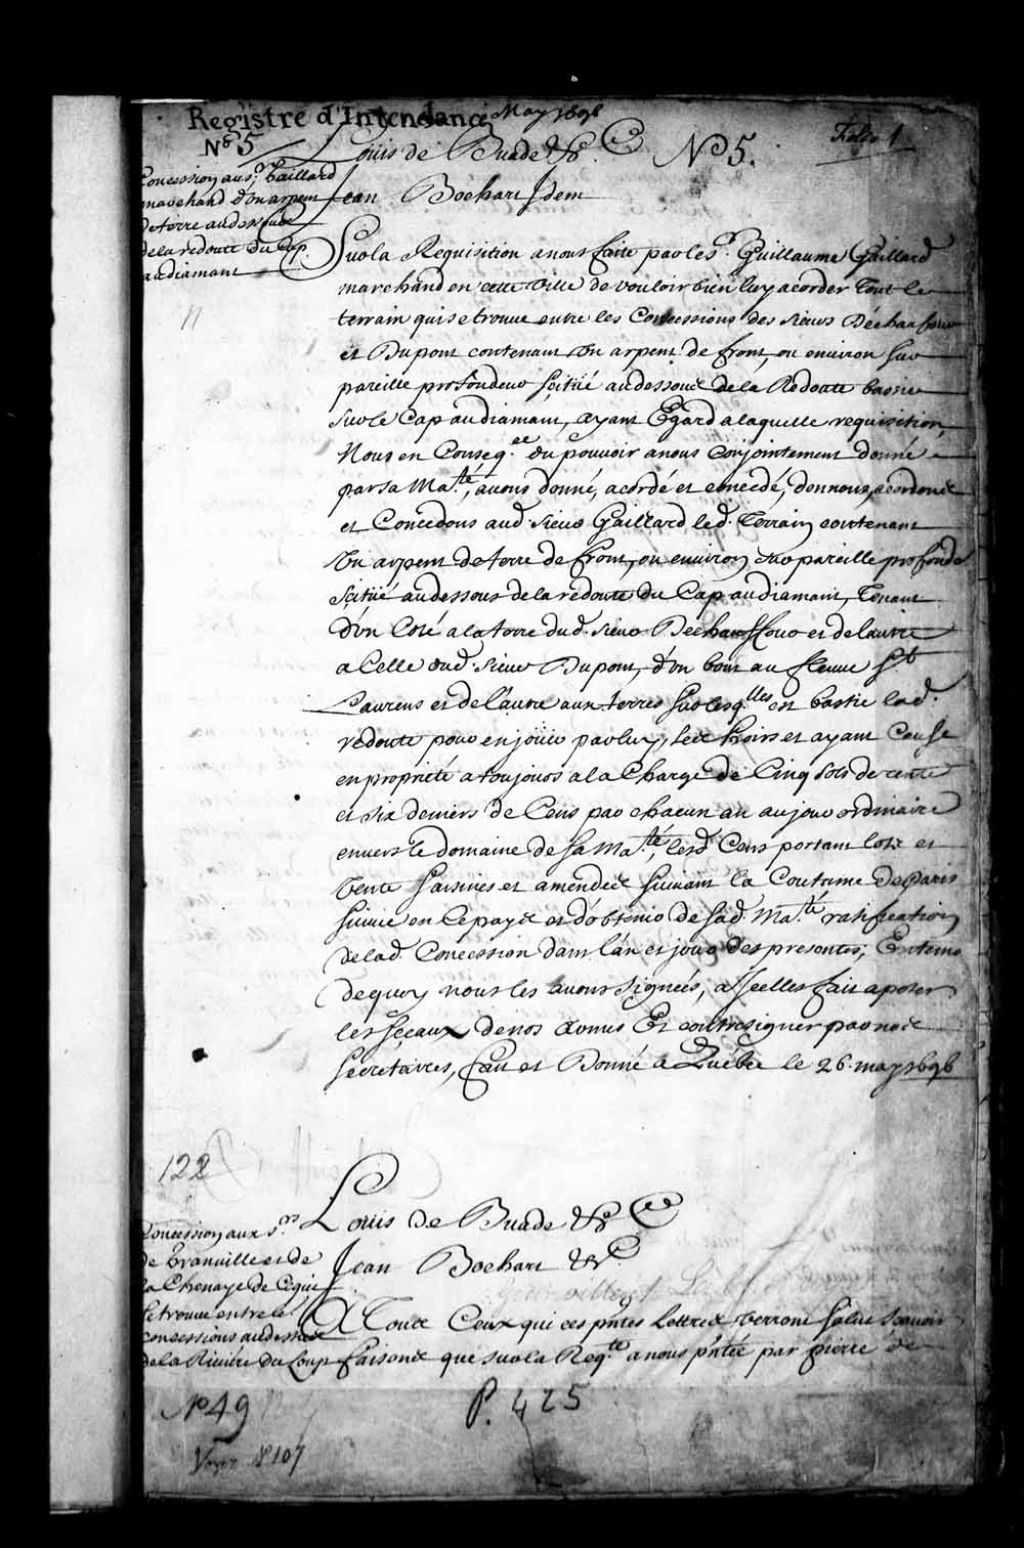 Registre d'Intendance May 1696
N° 5
Louis de Buade &c N° 5.
Folio 1
Concession au sr. Gaillard
marchand d'un arpent
de terre au dessous
de la redoute du Cap
au diamant
Jean Bochart Idem
Sur la Requisition a nous faite par le sr. Guillaume Gaillard
marchand en cette Ville de vouloir bien luy acorder Tout le
terrain qui se trouve entre les Concessions des sieurs Dechaufour
et Dupont contenant un arpent de front, ou environ sur
pareille profondeur scitué au dessous de la Redoute bastie
sur le Cap au diamant, ayant Egard a laquelle requisition,
Nous en Conseq.ce du pouvoir a nous conjointement donné
par sa Ma.té, avons donné, acordé et concedé, donnons, acordons
et Concedons aud. sieur Gaillard led. Terrain contenant
un arpent de terre de front, ou environ sur pareille profondr
Scitué au dessous de la redoute du Cap au diamant, Tenant
d'un Costé a la terre dud. sieur Dechauffour et de l'autre
a Celle dud. sieur Dupont, d'un bout au fleuve St
Laurens et de l'autre aux terres sur lesq.lles est bastie lad.
redoute pour en jouir par luy, ses hoirs et ayant Cause
en proprieté a toujours a la Charge de Cinq sols de rente
et six deniers de Cens par chacun an au jour ordinaire
envers le domaine de sa Ma.té, lesd Cens portant lots et
vente saisines et amendes suivant la Coutume de Paris
suivie en ce pays et d'obtenir de sad. Ma.té ratification
de lad. Concession dans l'an et jour des presentes; En temoin
de quoy nous les avons signées, a Icelles fait aposer
les sceaux de nos Armes Et contresigner par nos
Secretaires, Fait et Donné a Québec le 26. may 1696
122
Louis de Buade &c
Concession aux Srs
de Granville et de
la Chenaye de Ce qui
se trouve entre les
concessions au dessus
de la Riviere du Loup
Jean Bochart &c
A Tous Ceux qui ces pntes Lettres verront salut Scavoir
faisons que sur la Reqte a nous pntée par pierre de
N° 49
P. 425
Voyez 107